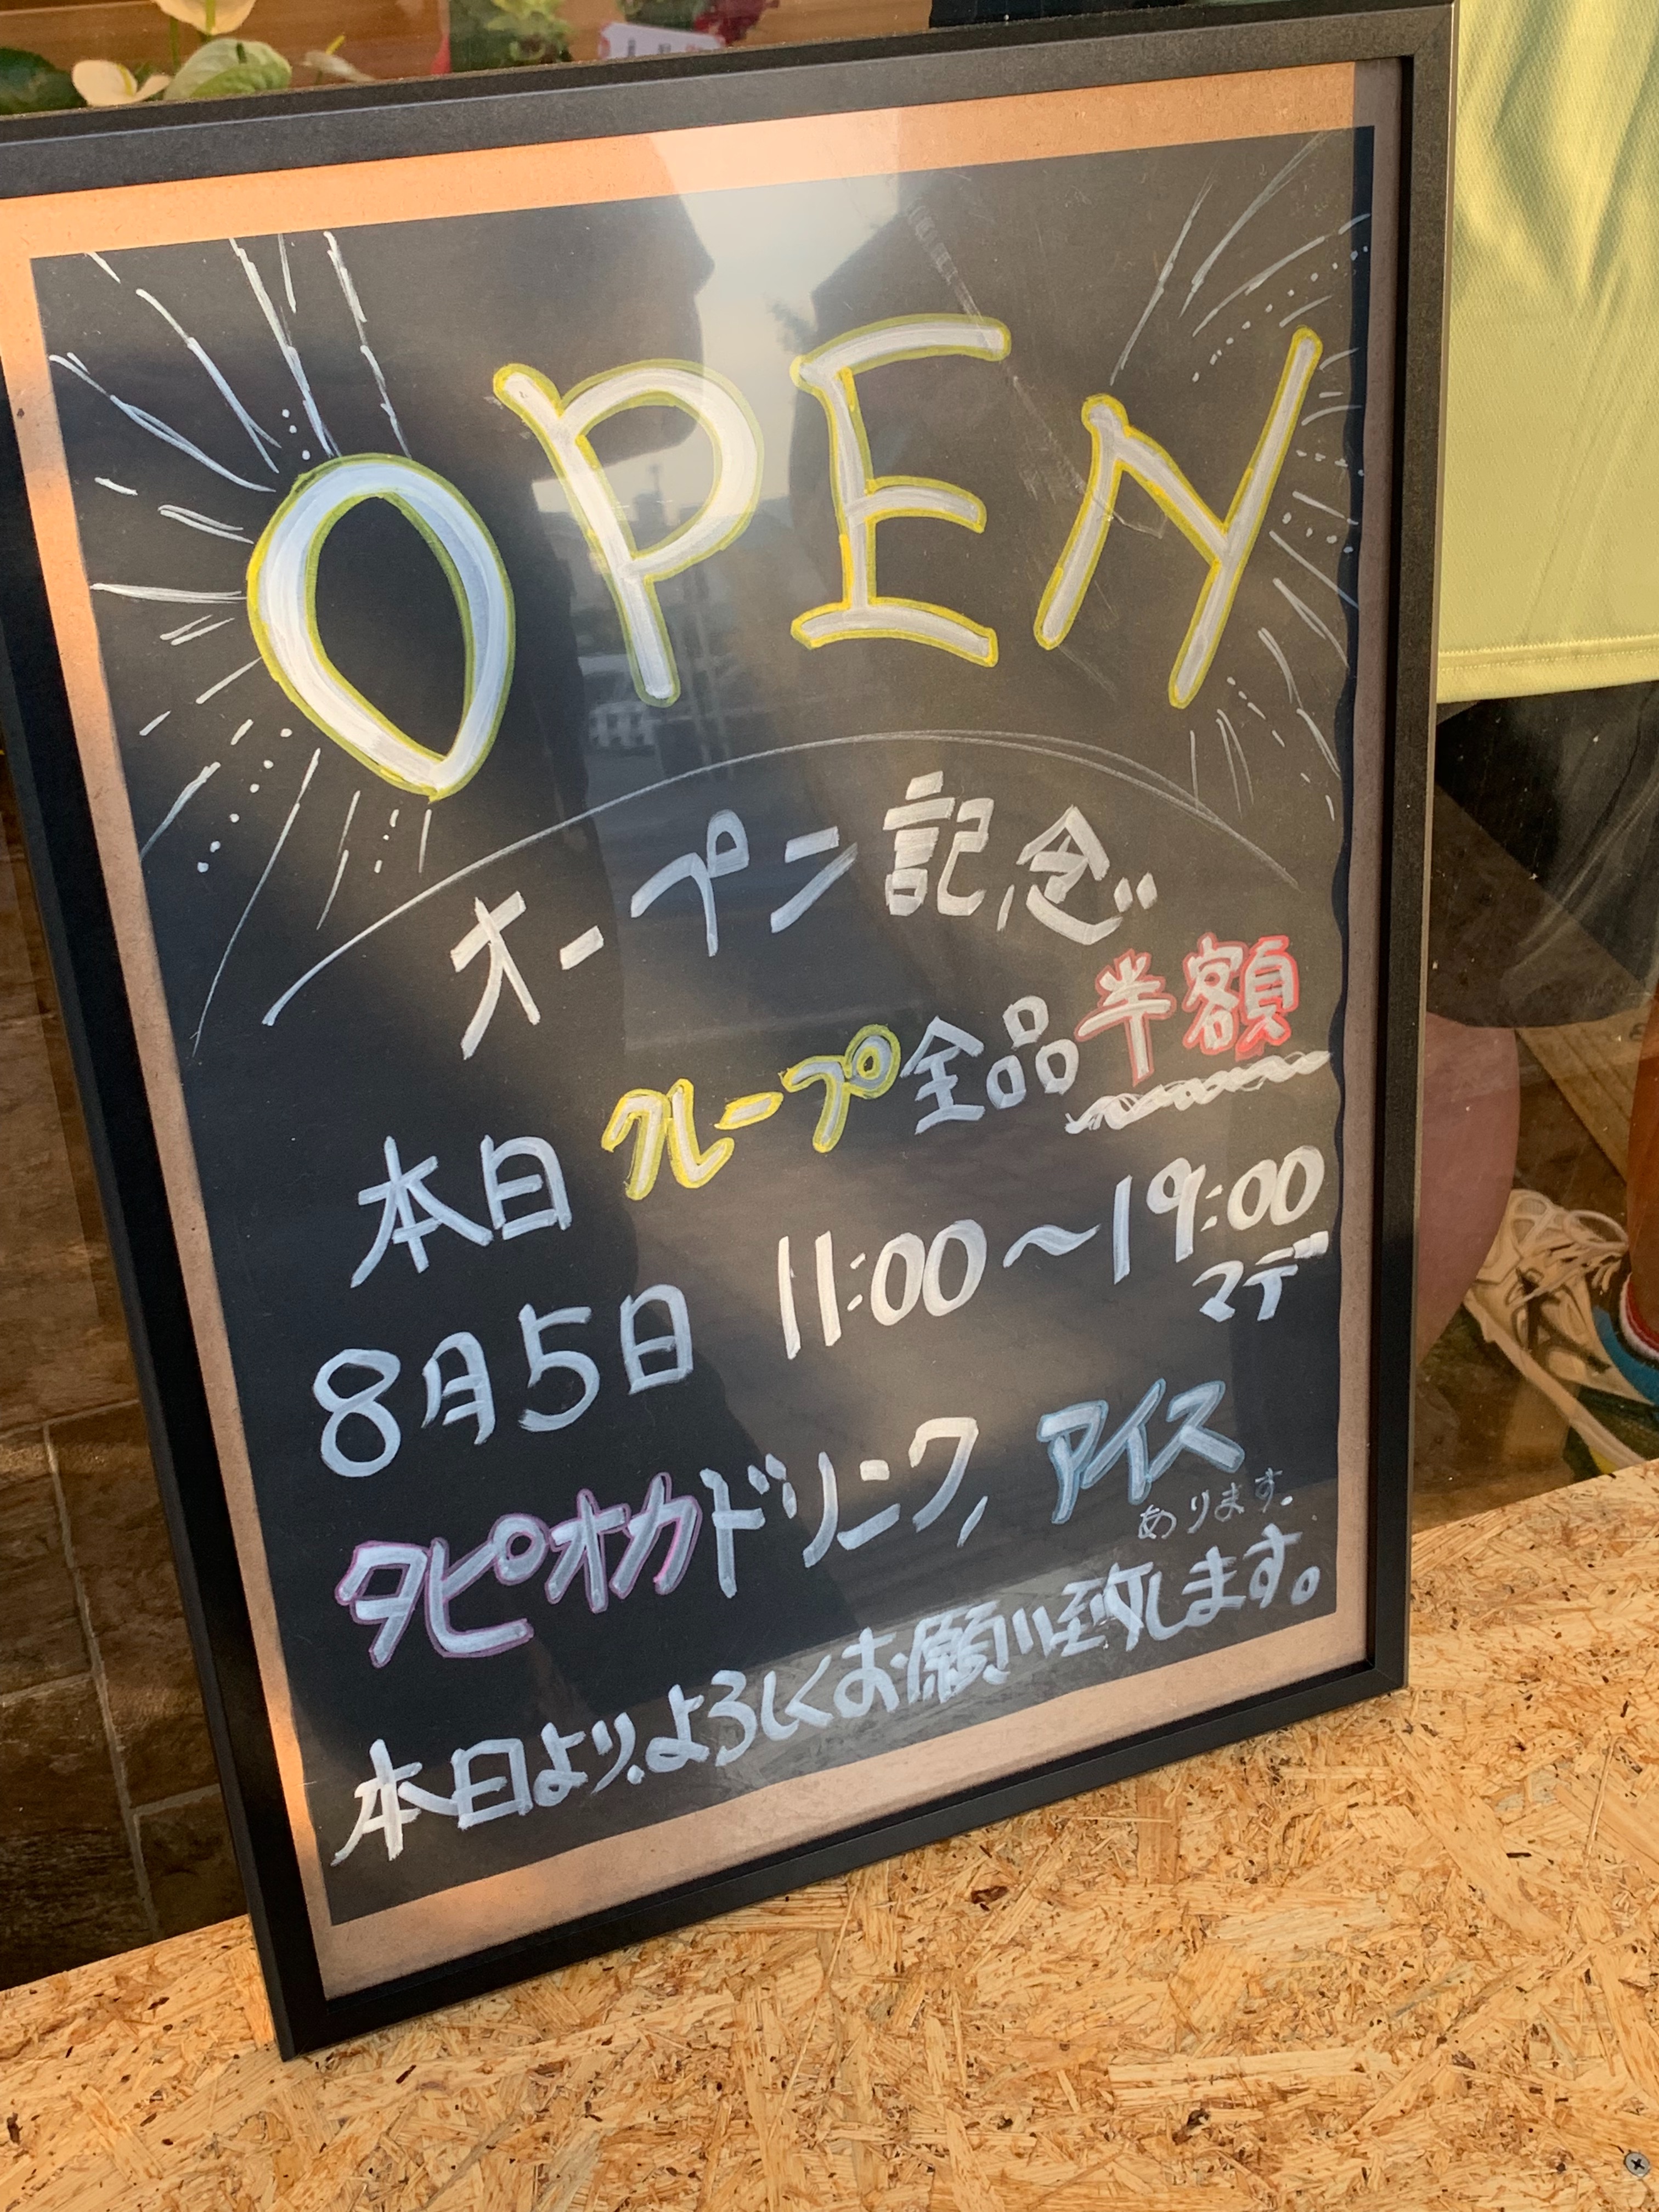 OPEN
オープン記念‥
本日クレープ全品半額
8月5日 11:00〜19:00
マデ
タピオカドリンク, アイス
あります.
本日より、よろしくお願い致します。